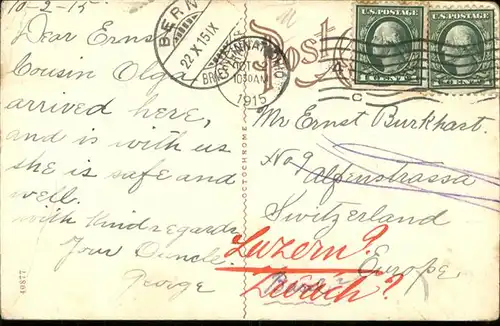 10-2-15
Dear Ernst
Cousin Olga
arrived here,
and is with us
she is safe and
well.
with Kind regards
Your Oncle.
George
40877
OCTOCHROME
BERN
22 X 15 IX
CINCINNATI, O.
OCT
1030AM
1915
Post
U.S. POSTAGE
1 CENT 1
U.S. POSTAGE
Mr Ernst Burkhart.
No 9 Alpenstrassa
Switzerland
Luzern?
Europe,
Zürich?